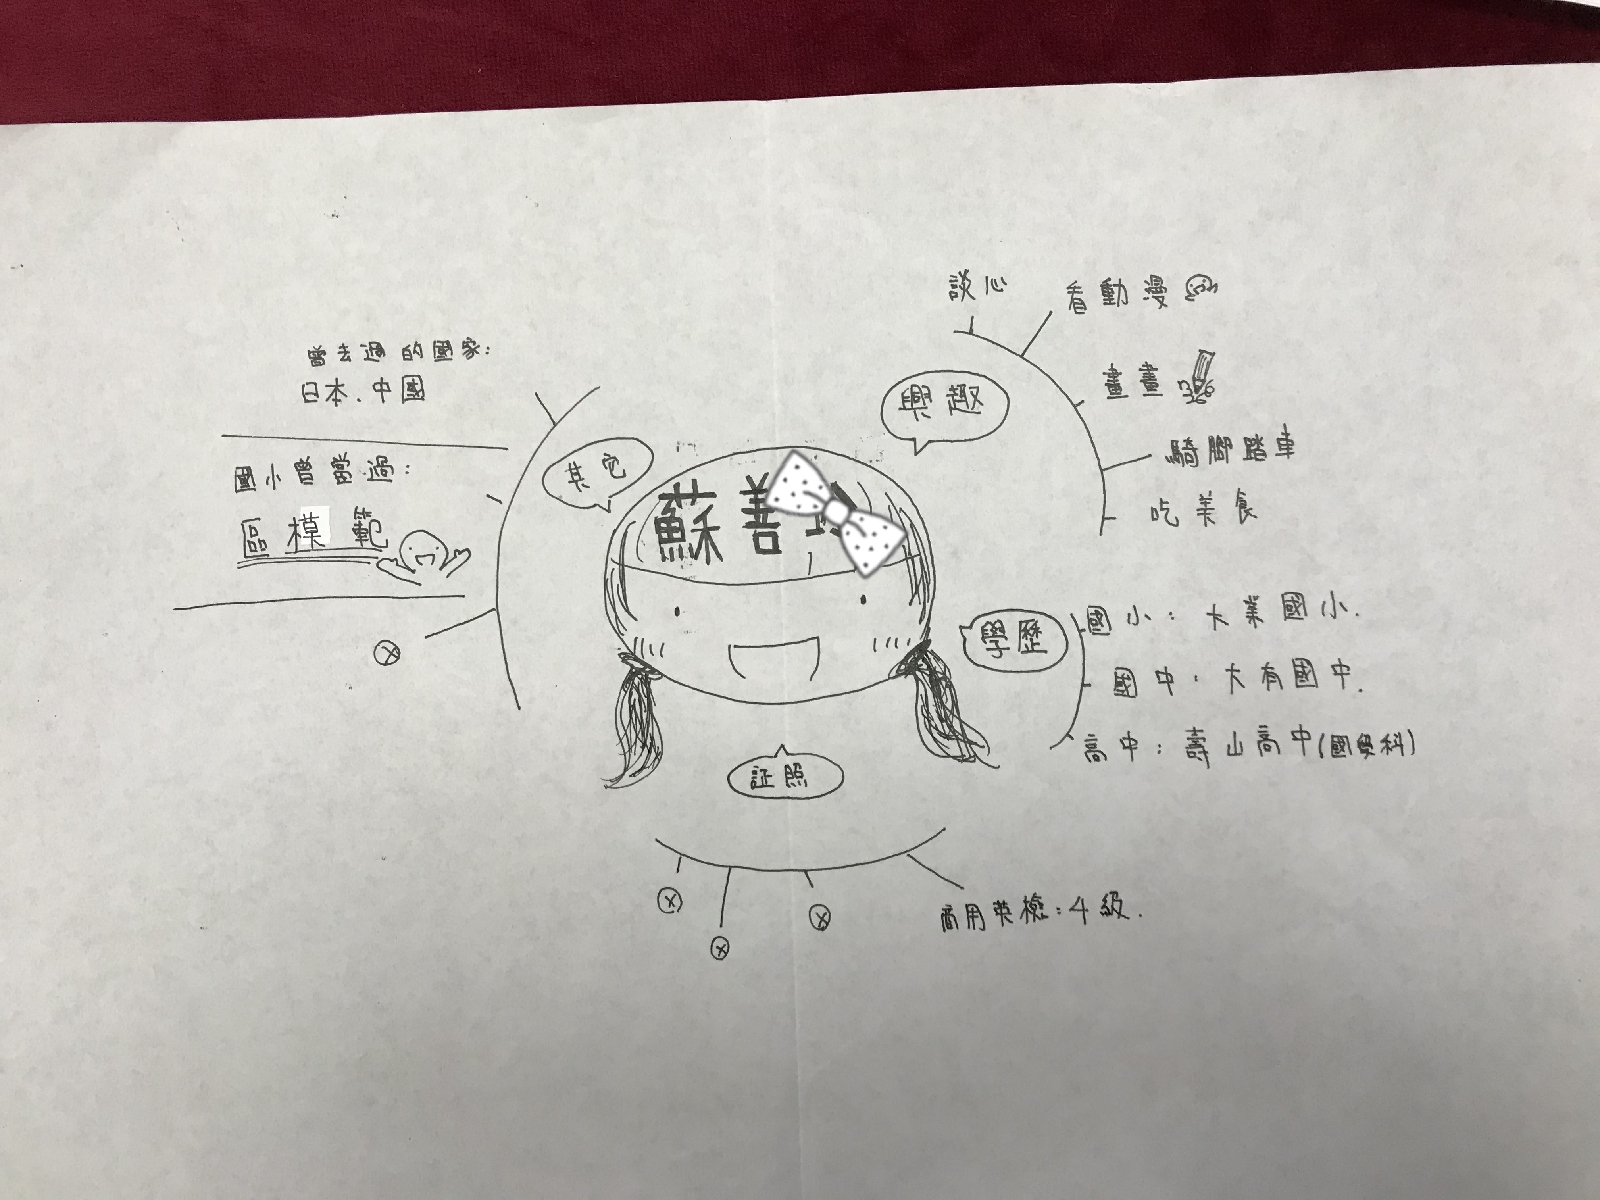 談心
看動漫
畫畫
騎腳踏車
吃美食
興趣
曾去過的國家:
日本.中國
國小曾當過:
區模範
其它
蘇善
學歷
國小:大業國小.
國中:大有國中.
高中:壽山高中(國雙科)
証照
商用英檢:4級.